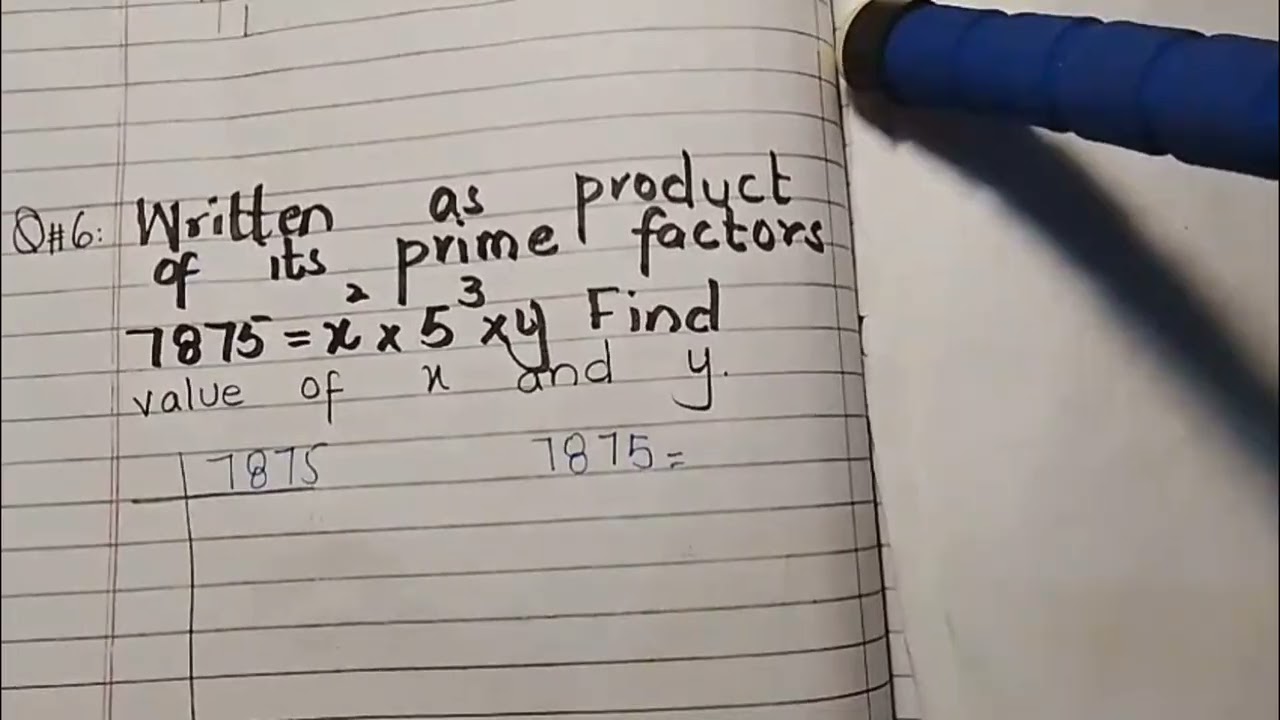 Q#6: Written as product
of its prime factors
7875 = x² × 5³ × y Find
value of x and y.
7875 7875 =